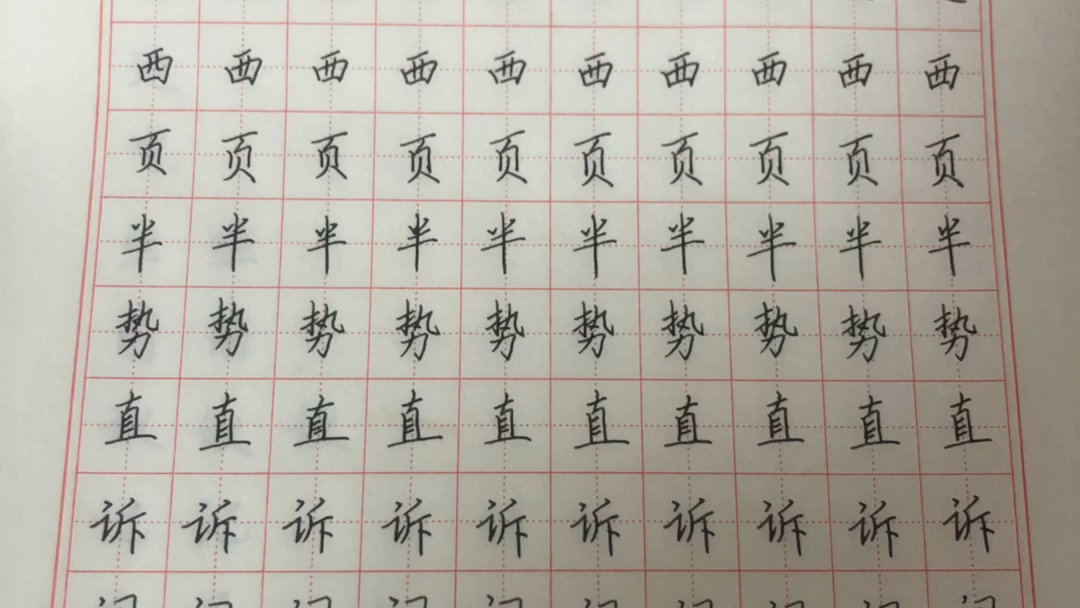 西西西西西西西西西西
页页页页页页页页页页
半半半半半半半半半半
势势势势势势势势势势
直直直直直直直直直直
诉诉诉诉诉诉诉诉诉诉